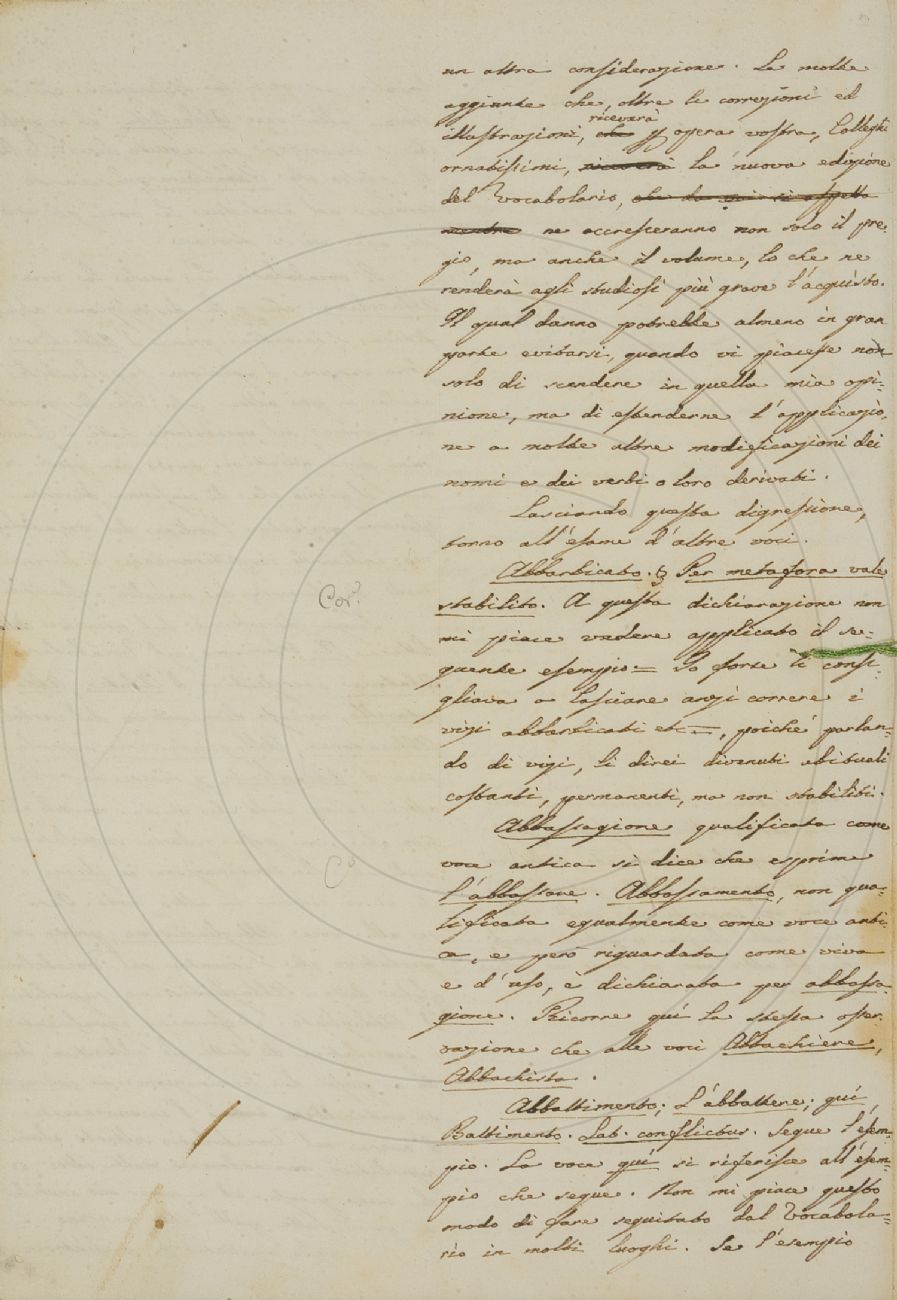 un altra considerazione. Le molte
aggiunte che, oltre le correzioni ed
riceverà
illustrazioni, che p opera vostra, Colleghi
ornatissimi, riceverà la nuova edizione
del Vocabolario, che da voi si aspetta
mentre ne accresceranno non solo il pre-
gio, ma anche il volume, lo che ne
renderà agli studiosi più grave l'acquisto.
Il qual danno potrebbe almeno in gran
parte evitarsi, quando vi piacesse non
solo di scendere in quella mia opi-
nione, ma di estenderne l'applicazio-
ne a molte altre modificazioni dei
nomi e dei verbi o loro derivati.
Lasciando questa digressione,
torno all'esame d'altre voci.
Abbarbicato. § Per metafora vale
stabilito. A questa dichiarazione non
Cor.e
mi piace vedere applicato il se-
guente esempio = Io forse ti consi-
gliava a lasciare anzi correre i
vizi abbarbicati etc =, poiché parlan-
do di vizi, li direi divenuti abituali
costanti, permanenti, ma non stabiliti.
Abbassagione qualificata come
voce antica si dice che esprime
C.o
l'abbassare. Abbassamento, non qua-
lificata egualmente come voce anti-
ca, e però riguardata come viva
e d'uso, è dichiarata per abbassa-
gione. Ricorre quì la stessa osser-
vazione che alle voci Abbachiere,
Abbachista.
Abbattimento; L'abbattere; quì
Battimento. Lat. conflictus. Segue l'esem-
pio. La voce quì si riferisce all'esem-
pio che segue. Non mi piace questo
modo di fare seguitato dal Vocabola-
rio in molti luoghi. Se l'esempio